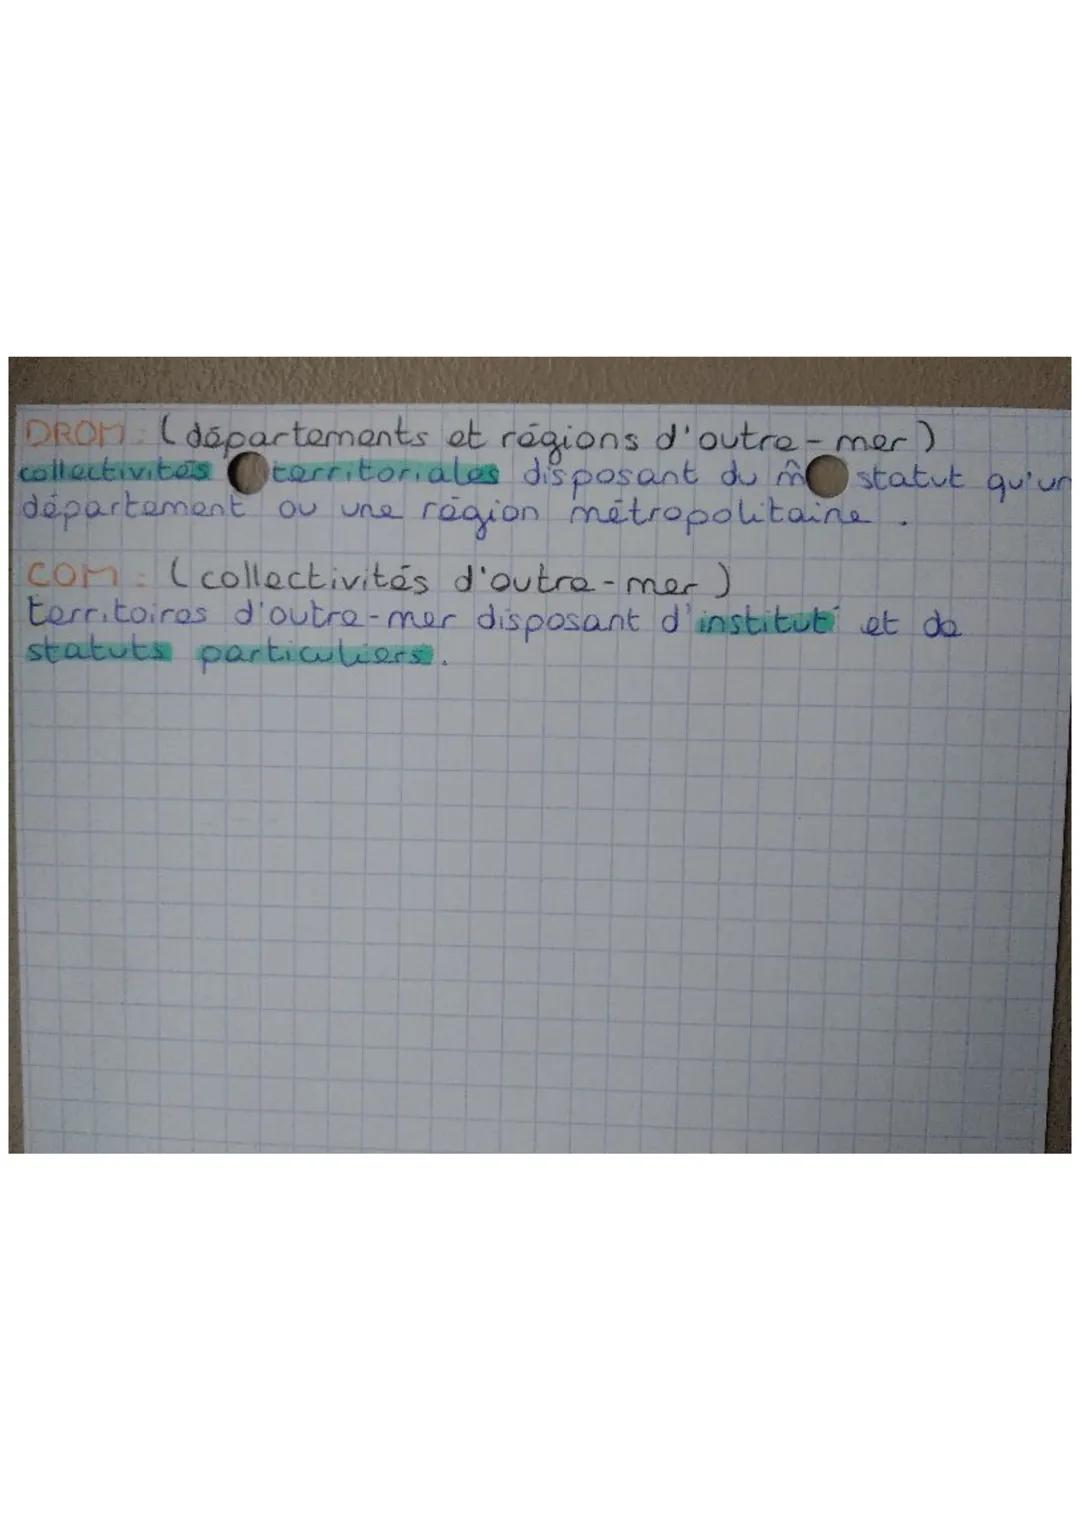 DROM : (départements et régions d'outre-mer)
collectivités territoriales disposant du m̂ statut qu'un
département ou une région métropolitaine.
COM : (collectivités d'outre-mer)
territoires d'outre-mer disposant d'institut° et de
statuts particuliers.